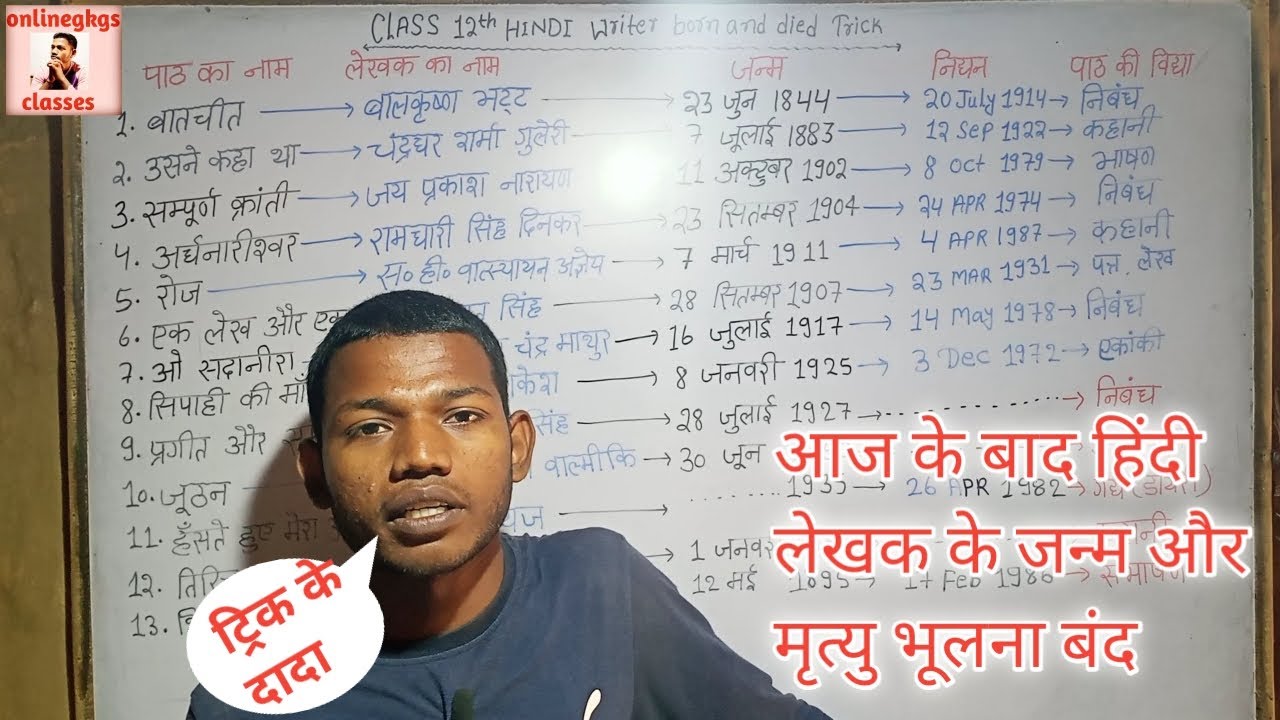 onlinegkgs
classes
CLASS 12th HINDI Writer born and died Trick
पाठ का नाम लेखक का नाम जन्म निधन पाठ की विद्या
1. बातचीत बालकृष्ण भट्ट 23 जुन 1844 20 July 1914 निबंध
2. उसने कहा था चंद्रधर शर्मा गुलेरी 7 जूलाई 1883 12 Sep 1922 कहानी
3. सम्पूर्ण क्रांती जय प्रकाश नारायण 11 अक्टुबर 1902 8 Oct 1979 भाषण
4. अर्धनारीश्वर रामधारी सिंह दिनकर 23 सितम्बर 1904 24 APR 1974 निबंध
5. रोज स० ही० वात्स्यायन अज्ञेय 7 मार्च 1911 4 APR 1987 कहानी
6. एक लेख और एक सिंह 28 सितम्बर 1907 23 MAR 1931 पत्र. लेख
7. ओ सदानीरा चंद्र माथुर 16 जुलाई 1917 14 May 1978 निबंध
8. सिपाही की माँ 8 जनवरी 1925 3 Dec 1972 एकांकी
9. प्रगीत और सिंह 28 जुलाई 1927 निबंध
10. जूठन वाल्मीकि 30 जून
11. हँसते हुए मेरा 26 APR 1982
12. 1
13. 12 मई 1895 17 Feb 1986
आज के बाद हिंदी
लेखक के जन्म और
मृत्यु भूलना बंद
ट्रिक के
दादा